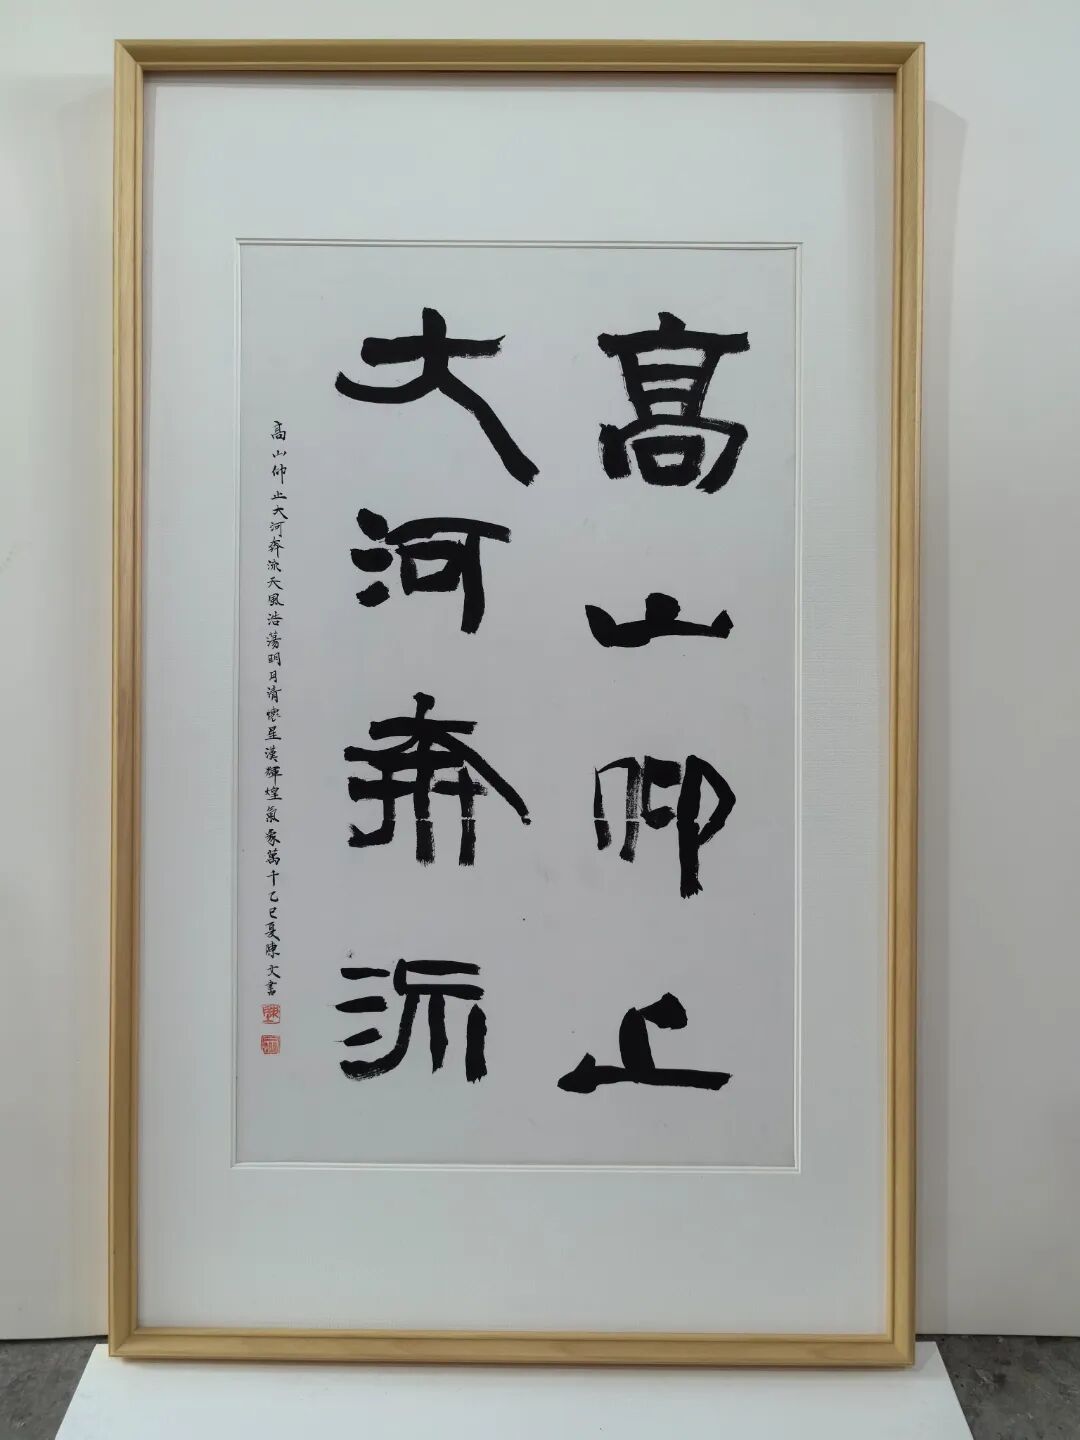 高山仰止
大河奔流
高山仰止大河奔流天風浩蕩明月清懷星漢輝煌氣象萬千乙巳夏陳文書